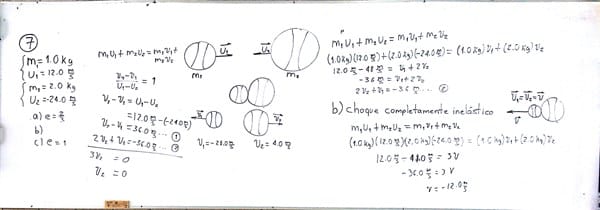 7
m₁ = 1.0 kg
U₁ = 12.0 m/s
m₂ = 2.0 kg
U₂ = -24.0 m/s
a) e = 2/3
b)
c) e = 1
m₁U₁ + m₂U₂ = m₁V₁ + m₂V₂
= 1
V₂ - V₁ = U₁ - U₂
= 12.0 m/s - (-24.0 m/s)
V₂ - V₁ = 36.0 m/s ... ①
2V₂ + V₁ = -36.0 m/s ... ②
3V₂ = 0
V₂ = 0
U₁
U₂
m₁
m₂
V₁
V₂
V₁ = -28.0 m/s
V₂ = 4.0 m/s
m₁U₁ + m₂U₂ = m₁V₁ + m₂V₂
(1.0 kg)(12.0 m/s) + (2.0 kg)(-24.0 m/s) = (1.0 kg)V₁ + (2.0 kg)V₂
12.0 m/s - 48 m/s = V₁ + 2V₂
-36 m/s = V₁ + 2V₂
2V₂ + V₁ = -36 m/s ... ②
b) choque completamente inelástico
V₁ = V₂ = V
V
m₁U₁ + m₂U₂ = m₁V₁ + m₂V₂
(1.0 kg)(12.0 m/s)(2.0 kg)(-24.0 m/s) = (1.0 kg)V₁ + (2.0 kg)V₂
-36.0 m/s = 3V
V = -12.0 m/s